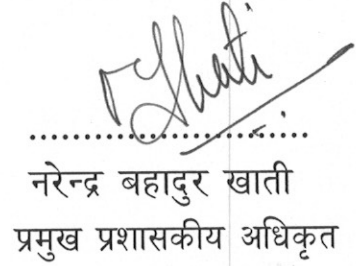 ..............................
नरेन्द्र बहादुर खाती
प्रमुख प्रशासकीय अधिकृत